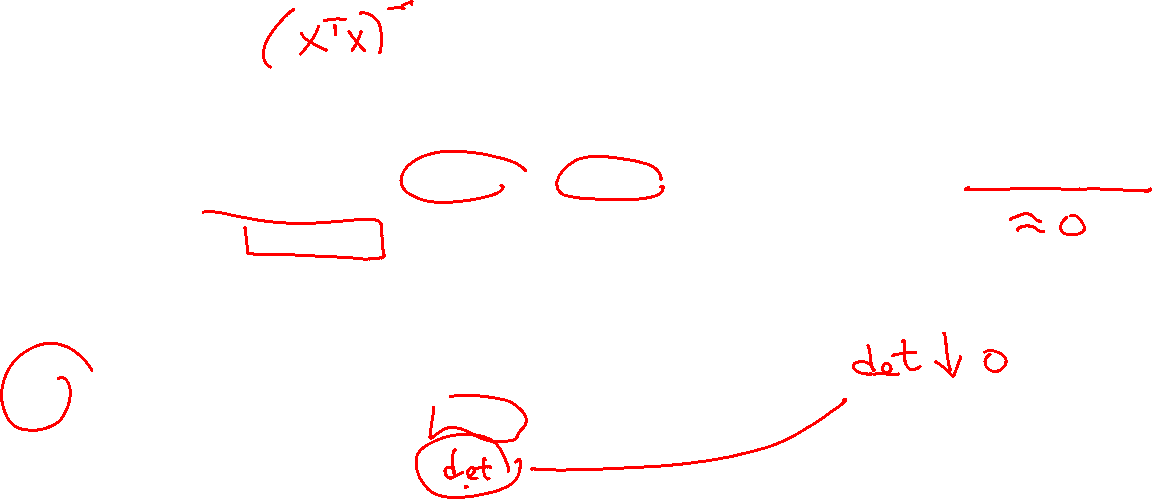 (XᵀX)⁻
≈ 0
det ↓ 0
det